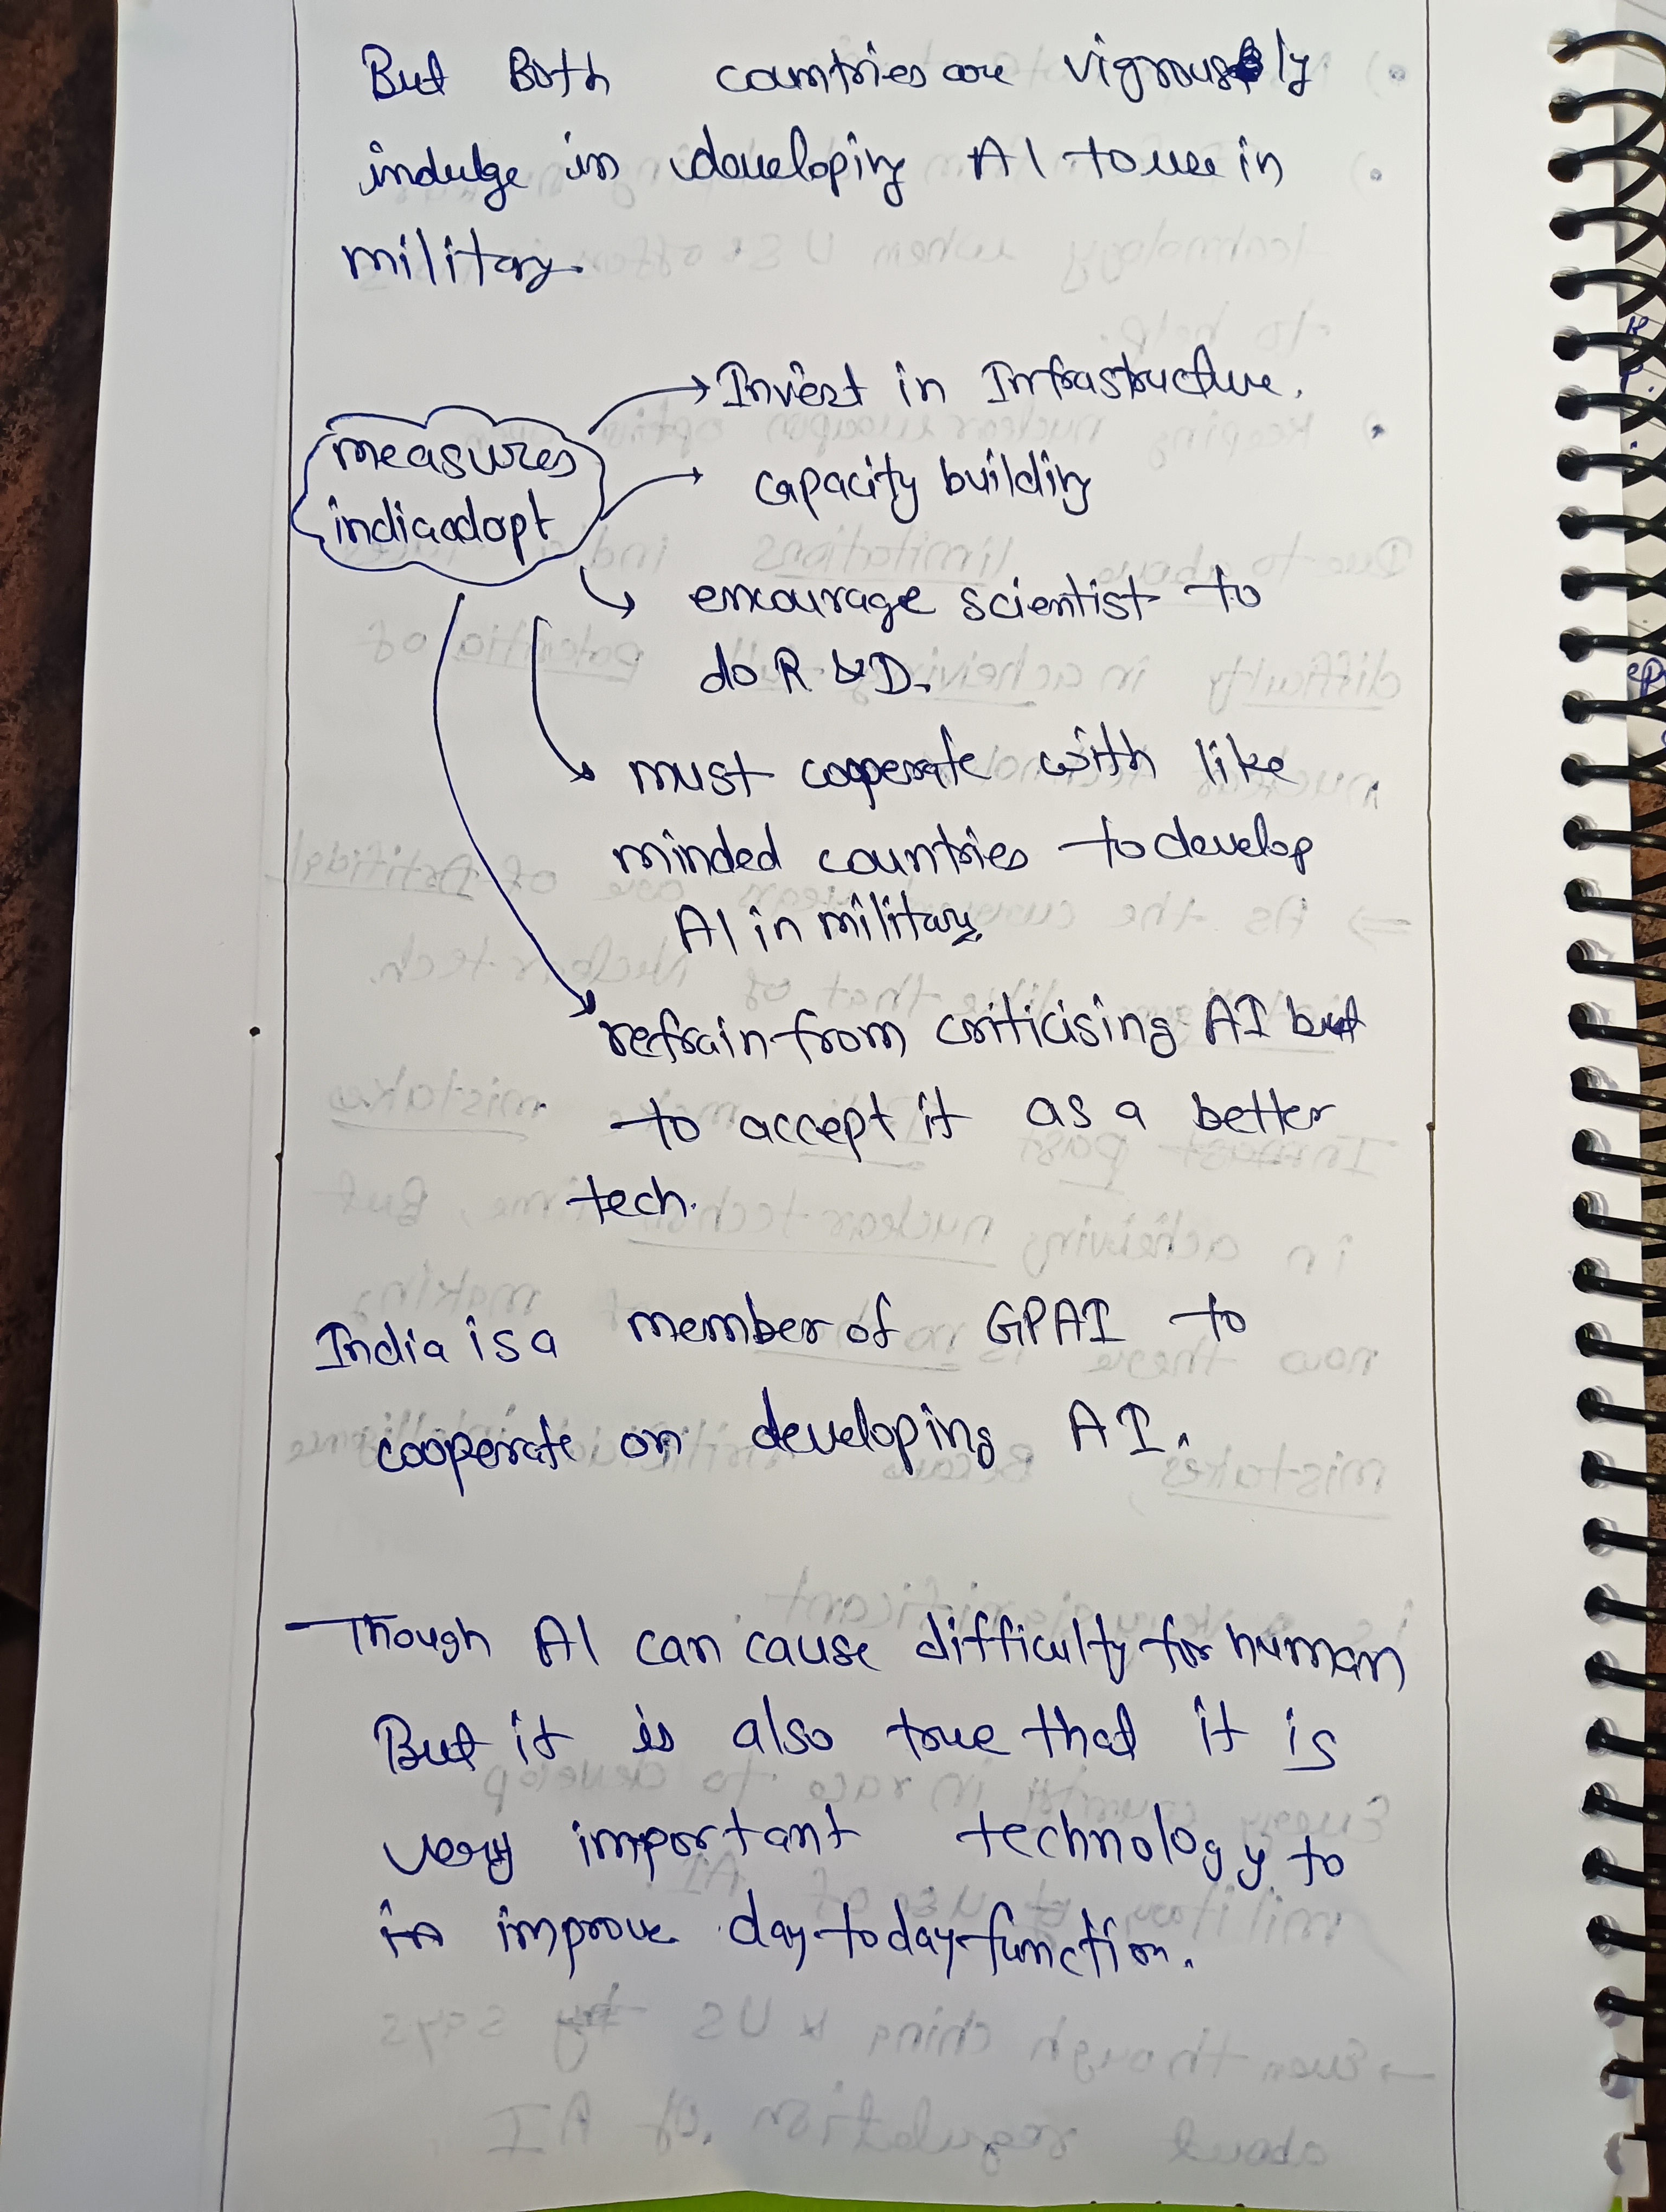 But Both countries are vigrously
indulge in developing AI to use in
military.
measures
india adopt
Invest in Infrastructure.
capacity building
encourage scientist to
do R & D.
must cooperate with like
minded countries to develop
AI in military.
refrain from criticising AI but
to accept it as a better
tech.
India is a member of GPAI to
cooperate on developing AI.
Though AI can cause difficulty for human
But it is also true that it is
very important technology to
in improve day to day function.